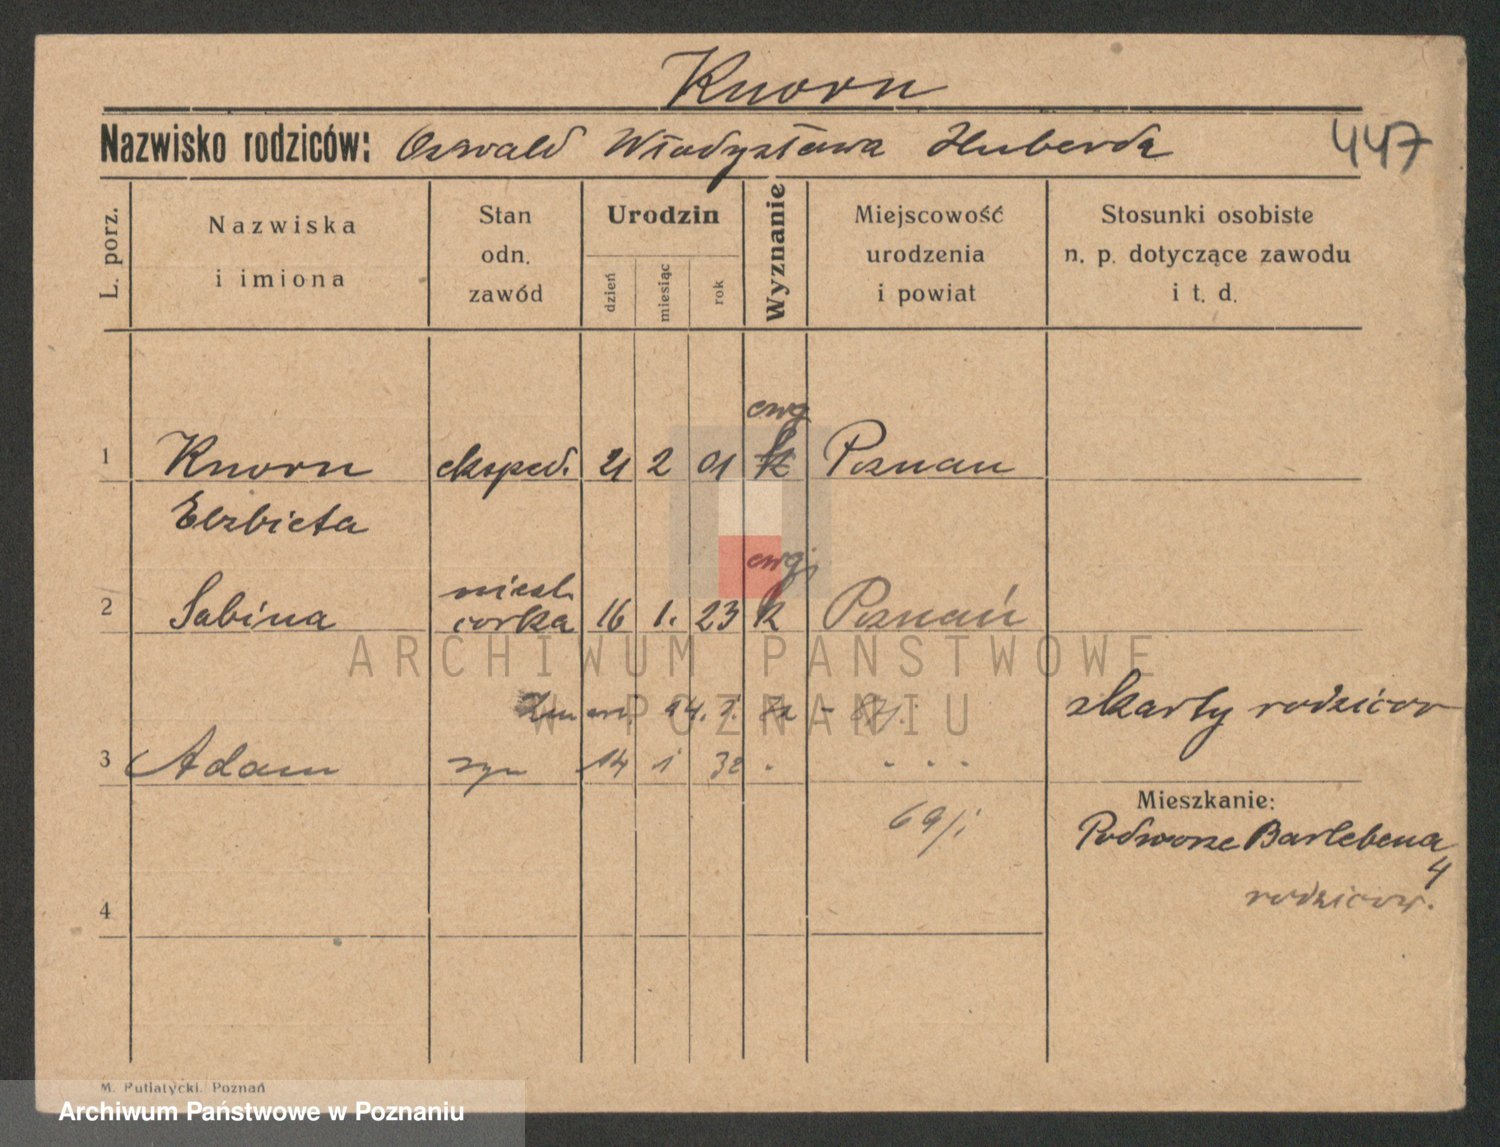 Knorn
Nazwisko rodziców: Oswald Władysława Huberda
447
L. porz.
Nazwiska i imiona
Stan odn. zawód
Urodzin
dzień miesiąc rok
Wyznanie
Miejscowość urodzenia i powiat
Stosunki osobiste n. p. dotyczące zawodu i t. d.
ewg
1 Knorn eksped. 21 2 01 k Poznan
Elzbieta
ewg.
2 Sabina nieśl. corka 16 1. 23 k Poznań
ARCHIWUM PAŃSTWOWE
W POZNANIU
Zmarł 24. 1.
z karty rodzicow
3 Adam syn 14 1 32 . . . .
Mieszkanie:
69/1
Podworze Barlebena
4
rodzicow.
4
M. Putiatycki. Poznań
Archiwum Państwowe w Poznaniu